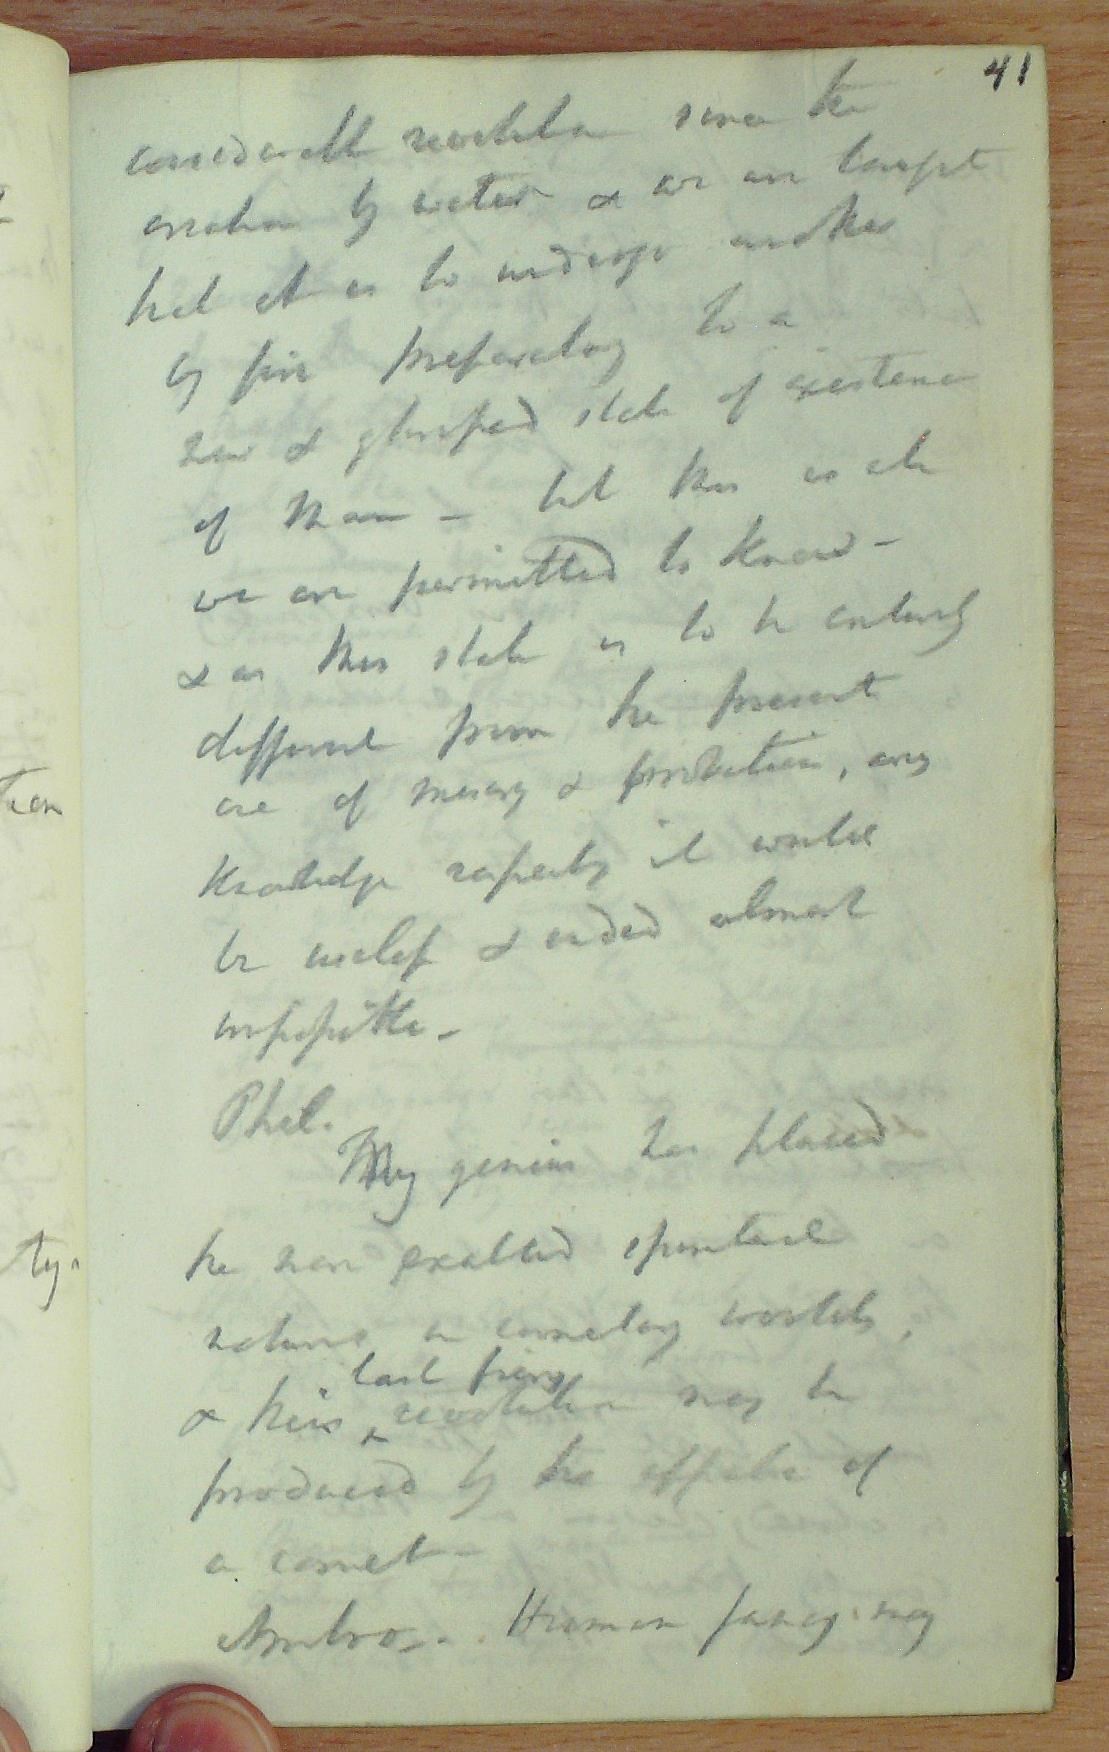 41
considerable revolution since the
creation by water & we are taught
that it is to undergo another
by fire preparatory to a
new & glorified state of existence
of Man - but this is all
we are permitted to know -
& as this state is to be entirely
different from the present
one of misery & probation, any
knowledge respecting it would
be useless & indeed almost
impossible -
Phil.
My genius has placed
the more exalted spiritual
natures in cometary worlds,
& this last fiery revolution may be
produced by the effects of
a comet -
Ambro. - Human fancy may
tion
ty.